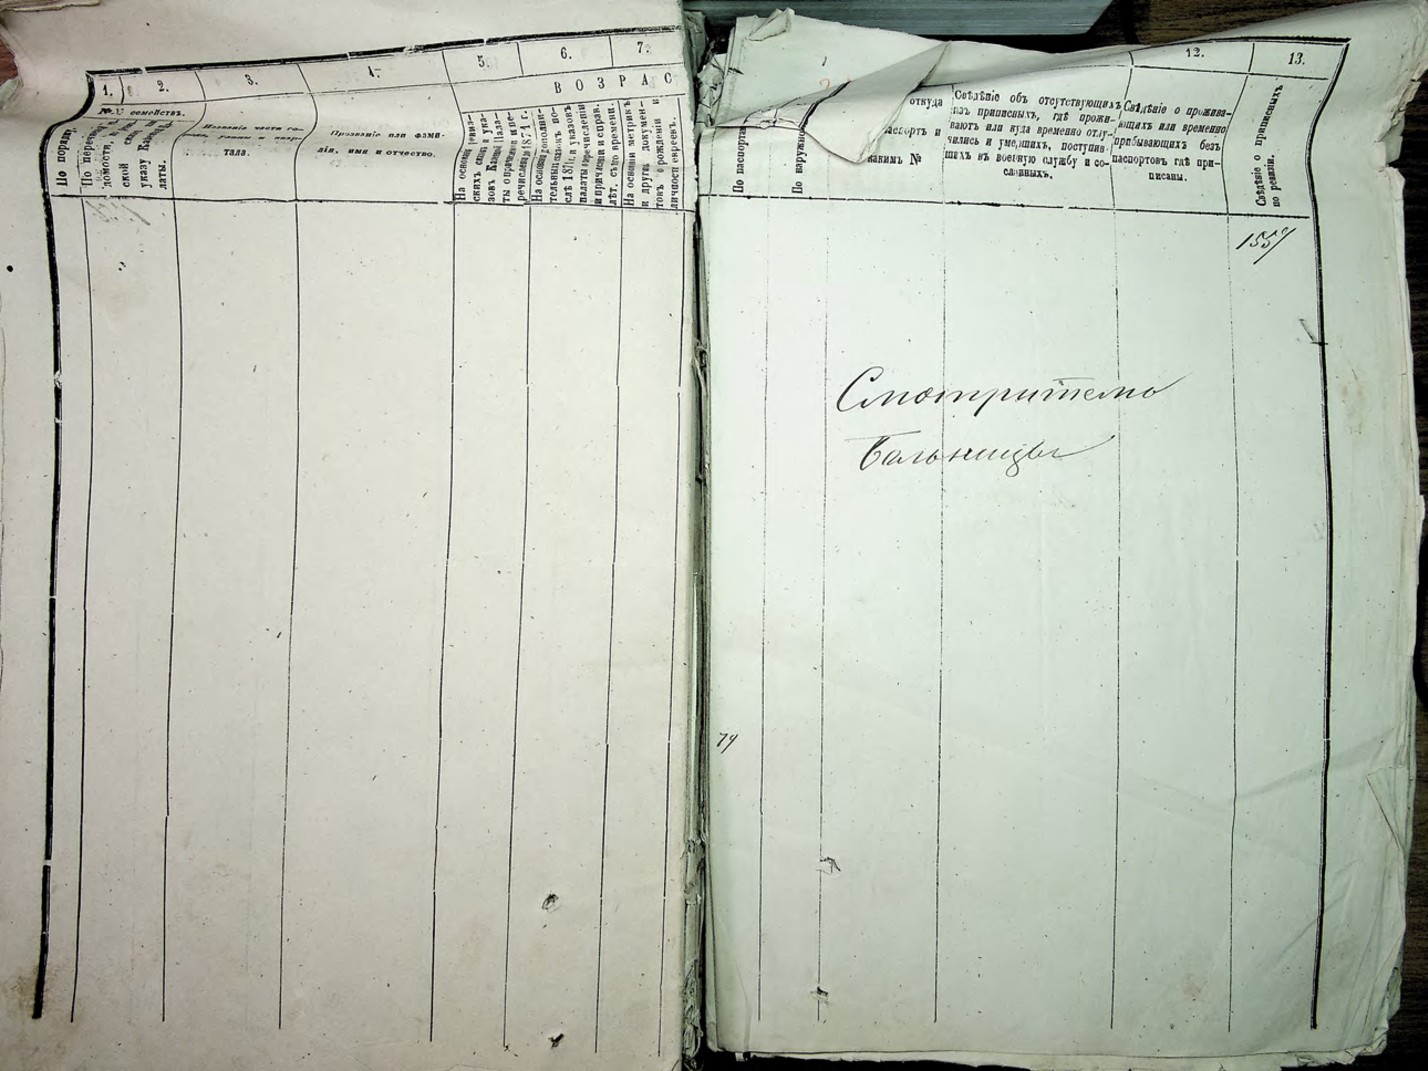 1. 2. 3. 4. 5. 6. 7.
ВОЗРАС
№№ семействъ.
По порядку
По перечн.
домости,
ской
указу Казенной
латы.
Названіе части го-
тала.
Прозваніе или фами-
лія, имя и отчество.
На основ. ревиз-
скихъ сказ. и ука-
зовъ Казен. Пала-
ты о причислен. и пе-
речислен. до 1874 г.
На основ. дополни-
тельныхъ сказокъ по-
слѣ 1874 г. и указовъ
палаты о перечислении
и причислен. и справ.
лѣт. съ по времени.
На основ. метрикъ
и другихъ докумен-
товъ о рожденіи и
личности евреевъ.
12. 13.
По паспорта
По наружно
откуда
аспортъ и
какимъ №
Свѣдѣніе объ отсутствующихъ
изъ приписныхъ, гдѣ прожи-
ваютъ или куда временно отлу-
чились и умершихъ, поступив-
шихъ въ военную службу и со-
сланныхъ.
Свѣдѣніе о прожива-
ющихъ или временно
прибывающихъ безъ
паспортовъ гдѣ при-
писаны.
Свѣдѣніе о приписныхъ
по ревизіи.
155
Смотрителю
Больницы
74